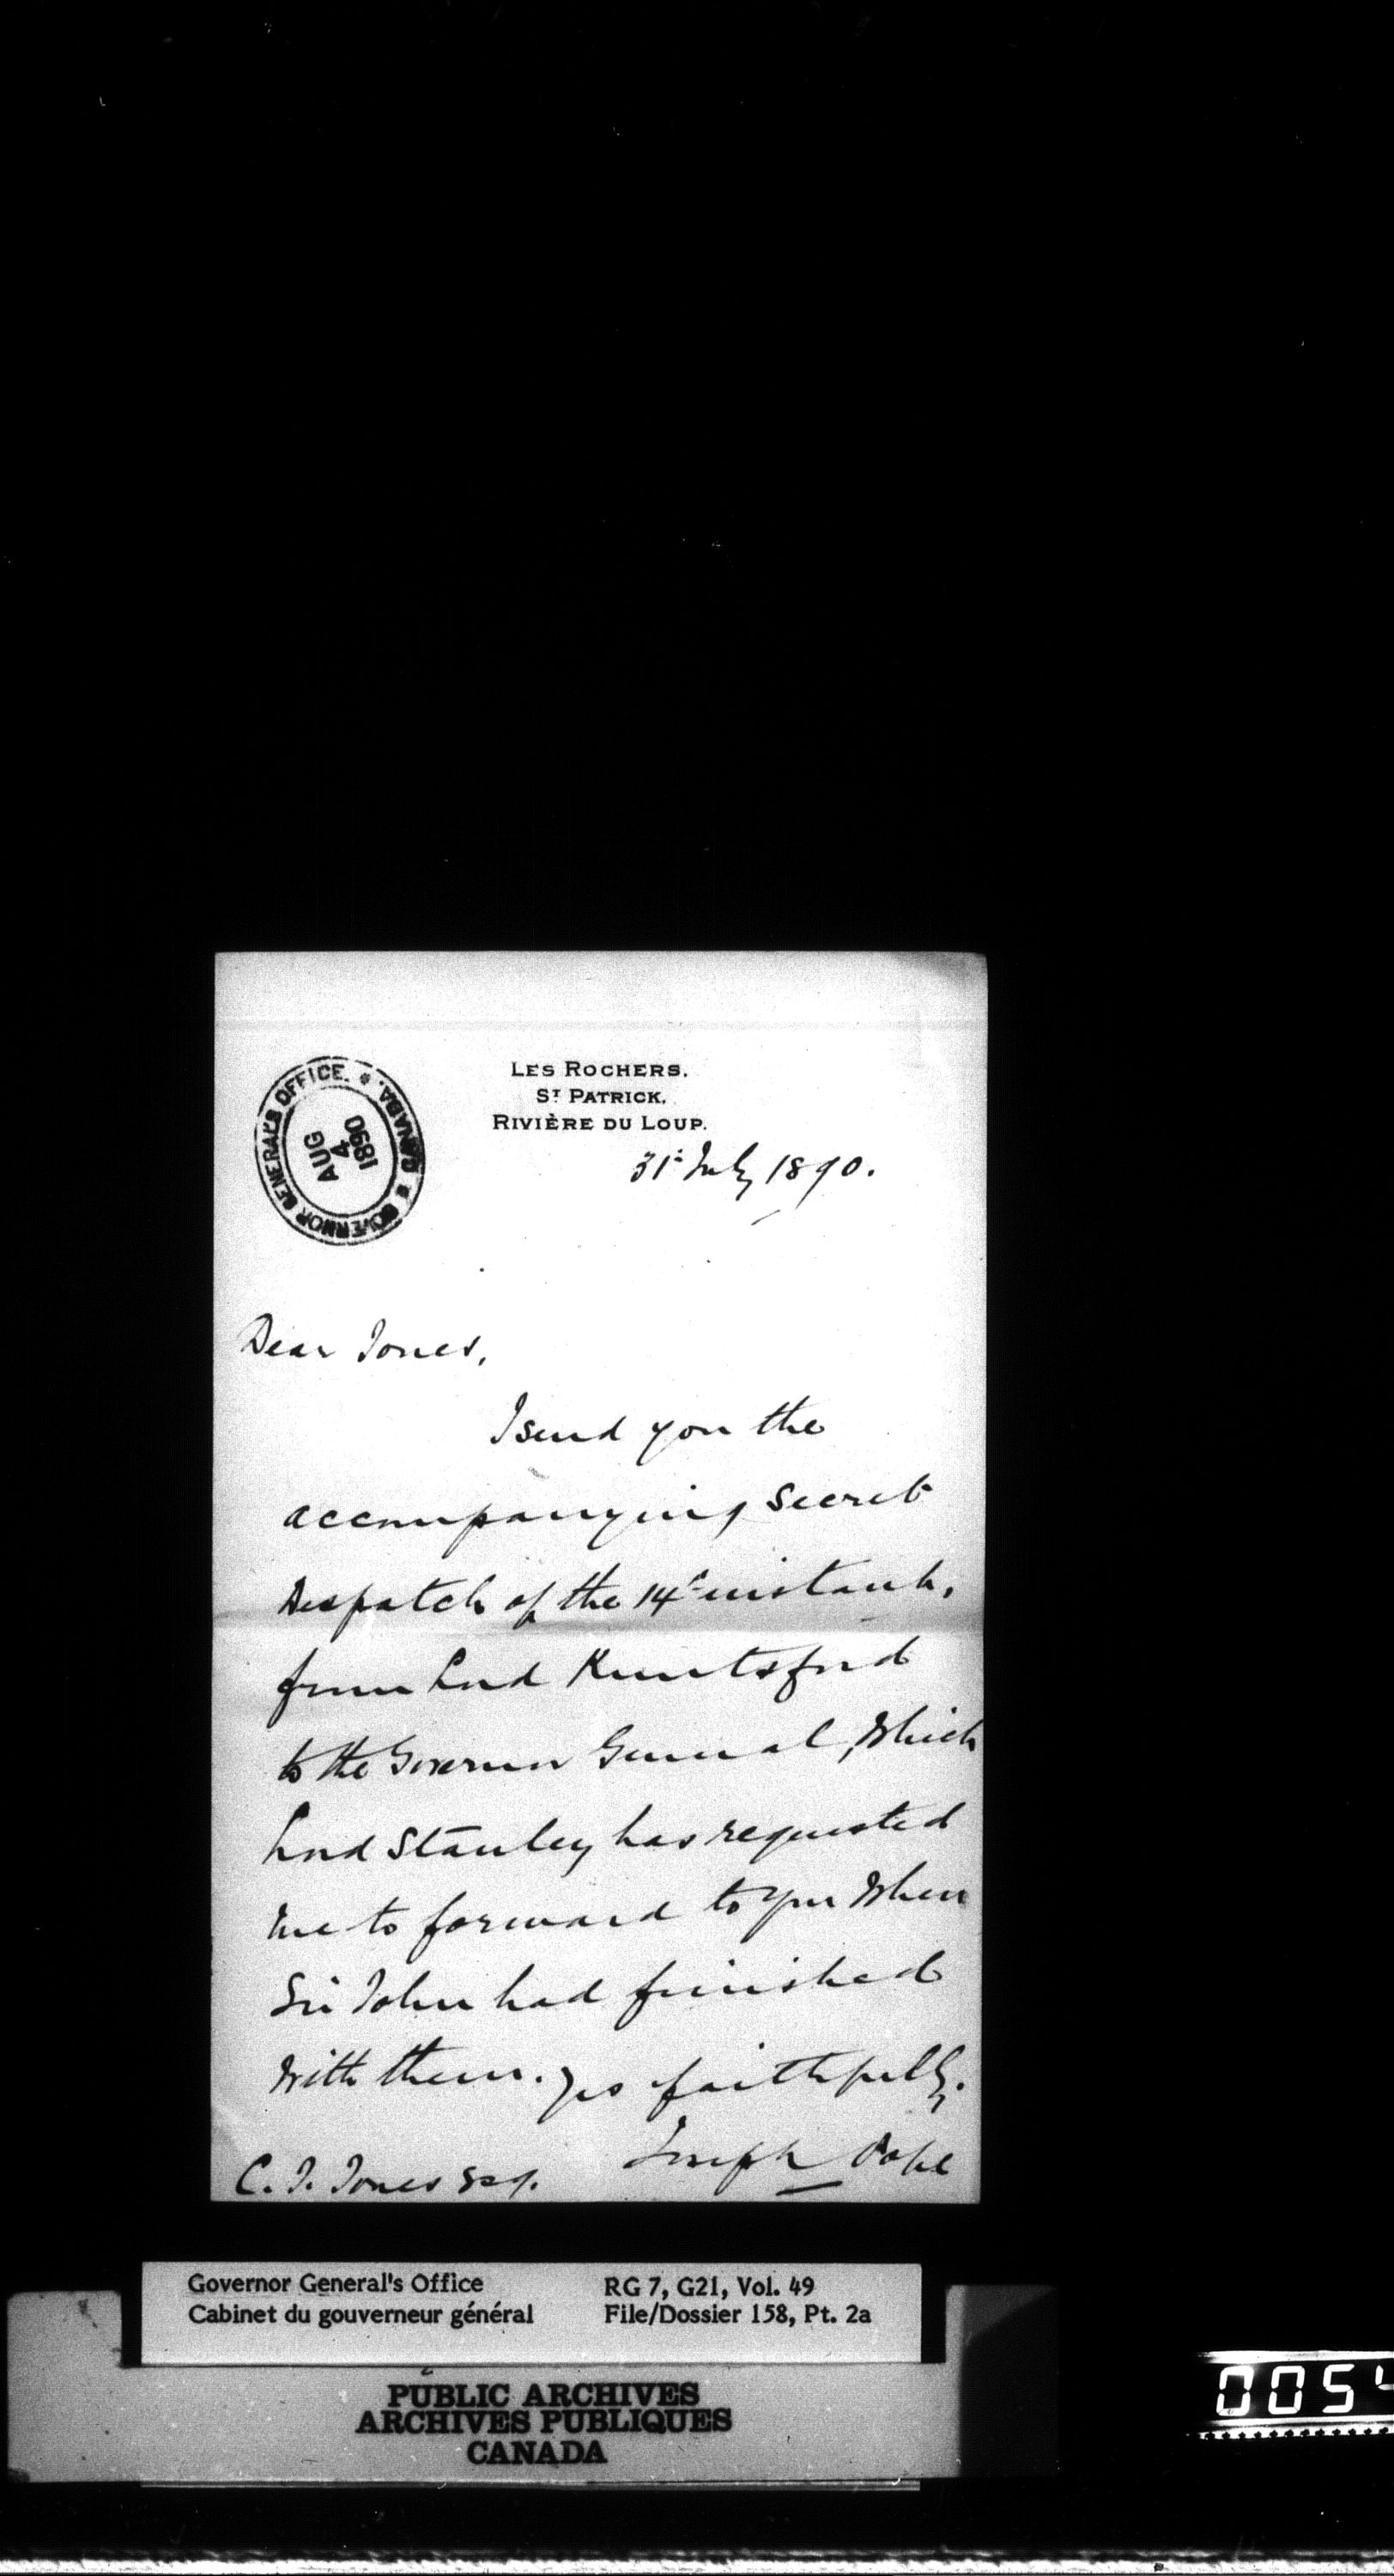 LES ROCHERS.
ST PATRICK.
RIVIÈRE DU LOUP.
GOVERNOR GENERAL'S OFFICE. * CANADA. *
AUG
4
1890
31st July 1890.
Dear Jones,
I send you the
accompanying Secret
Despatch of the 14th instant,
from Lord Knutsford
to the Governor General, which
Lord Stanley has requested
me to forward to you when
Sir John had finished
with them. Yrs faithfully.
Joseph Pope
C. J. Jones Esq.
Governor General's Office
Cabinet du gouverneur général
RG 7, G21, Vol. 49
File/Dossier 158, Pt. 2a
PUBLIC ARCHIVES
ARCHIVES PUBLIQUES
CANADA
0054